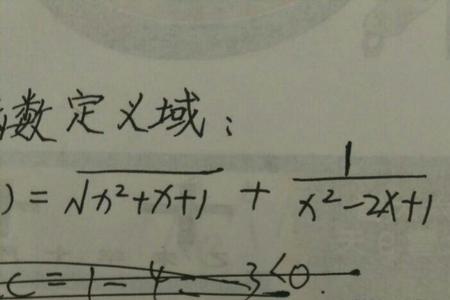 数定义域:
) = √x²+x+1 + 1/(x²-2x+1)
c = 1 - 4 = -3 < 0